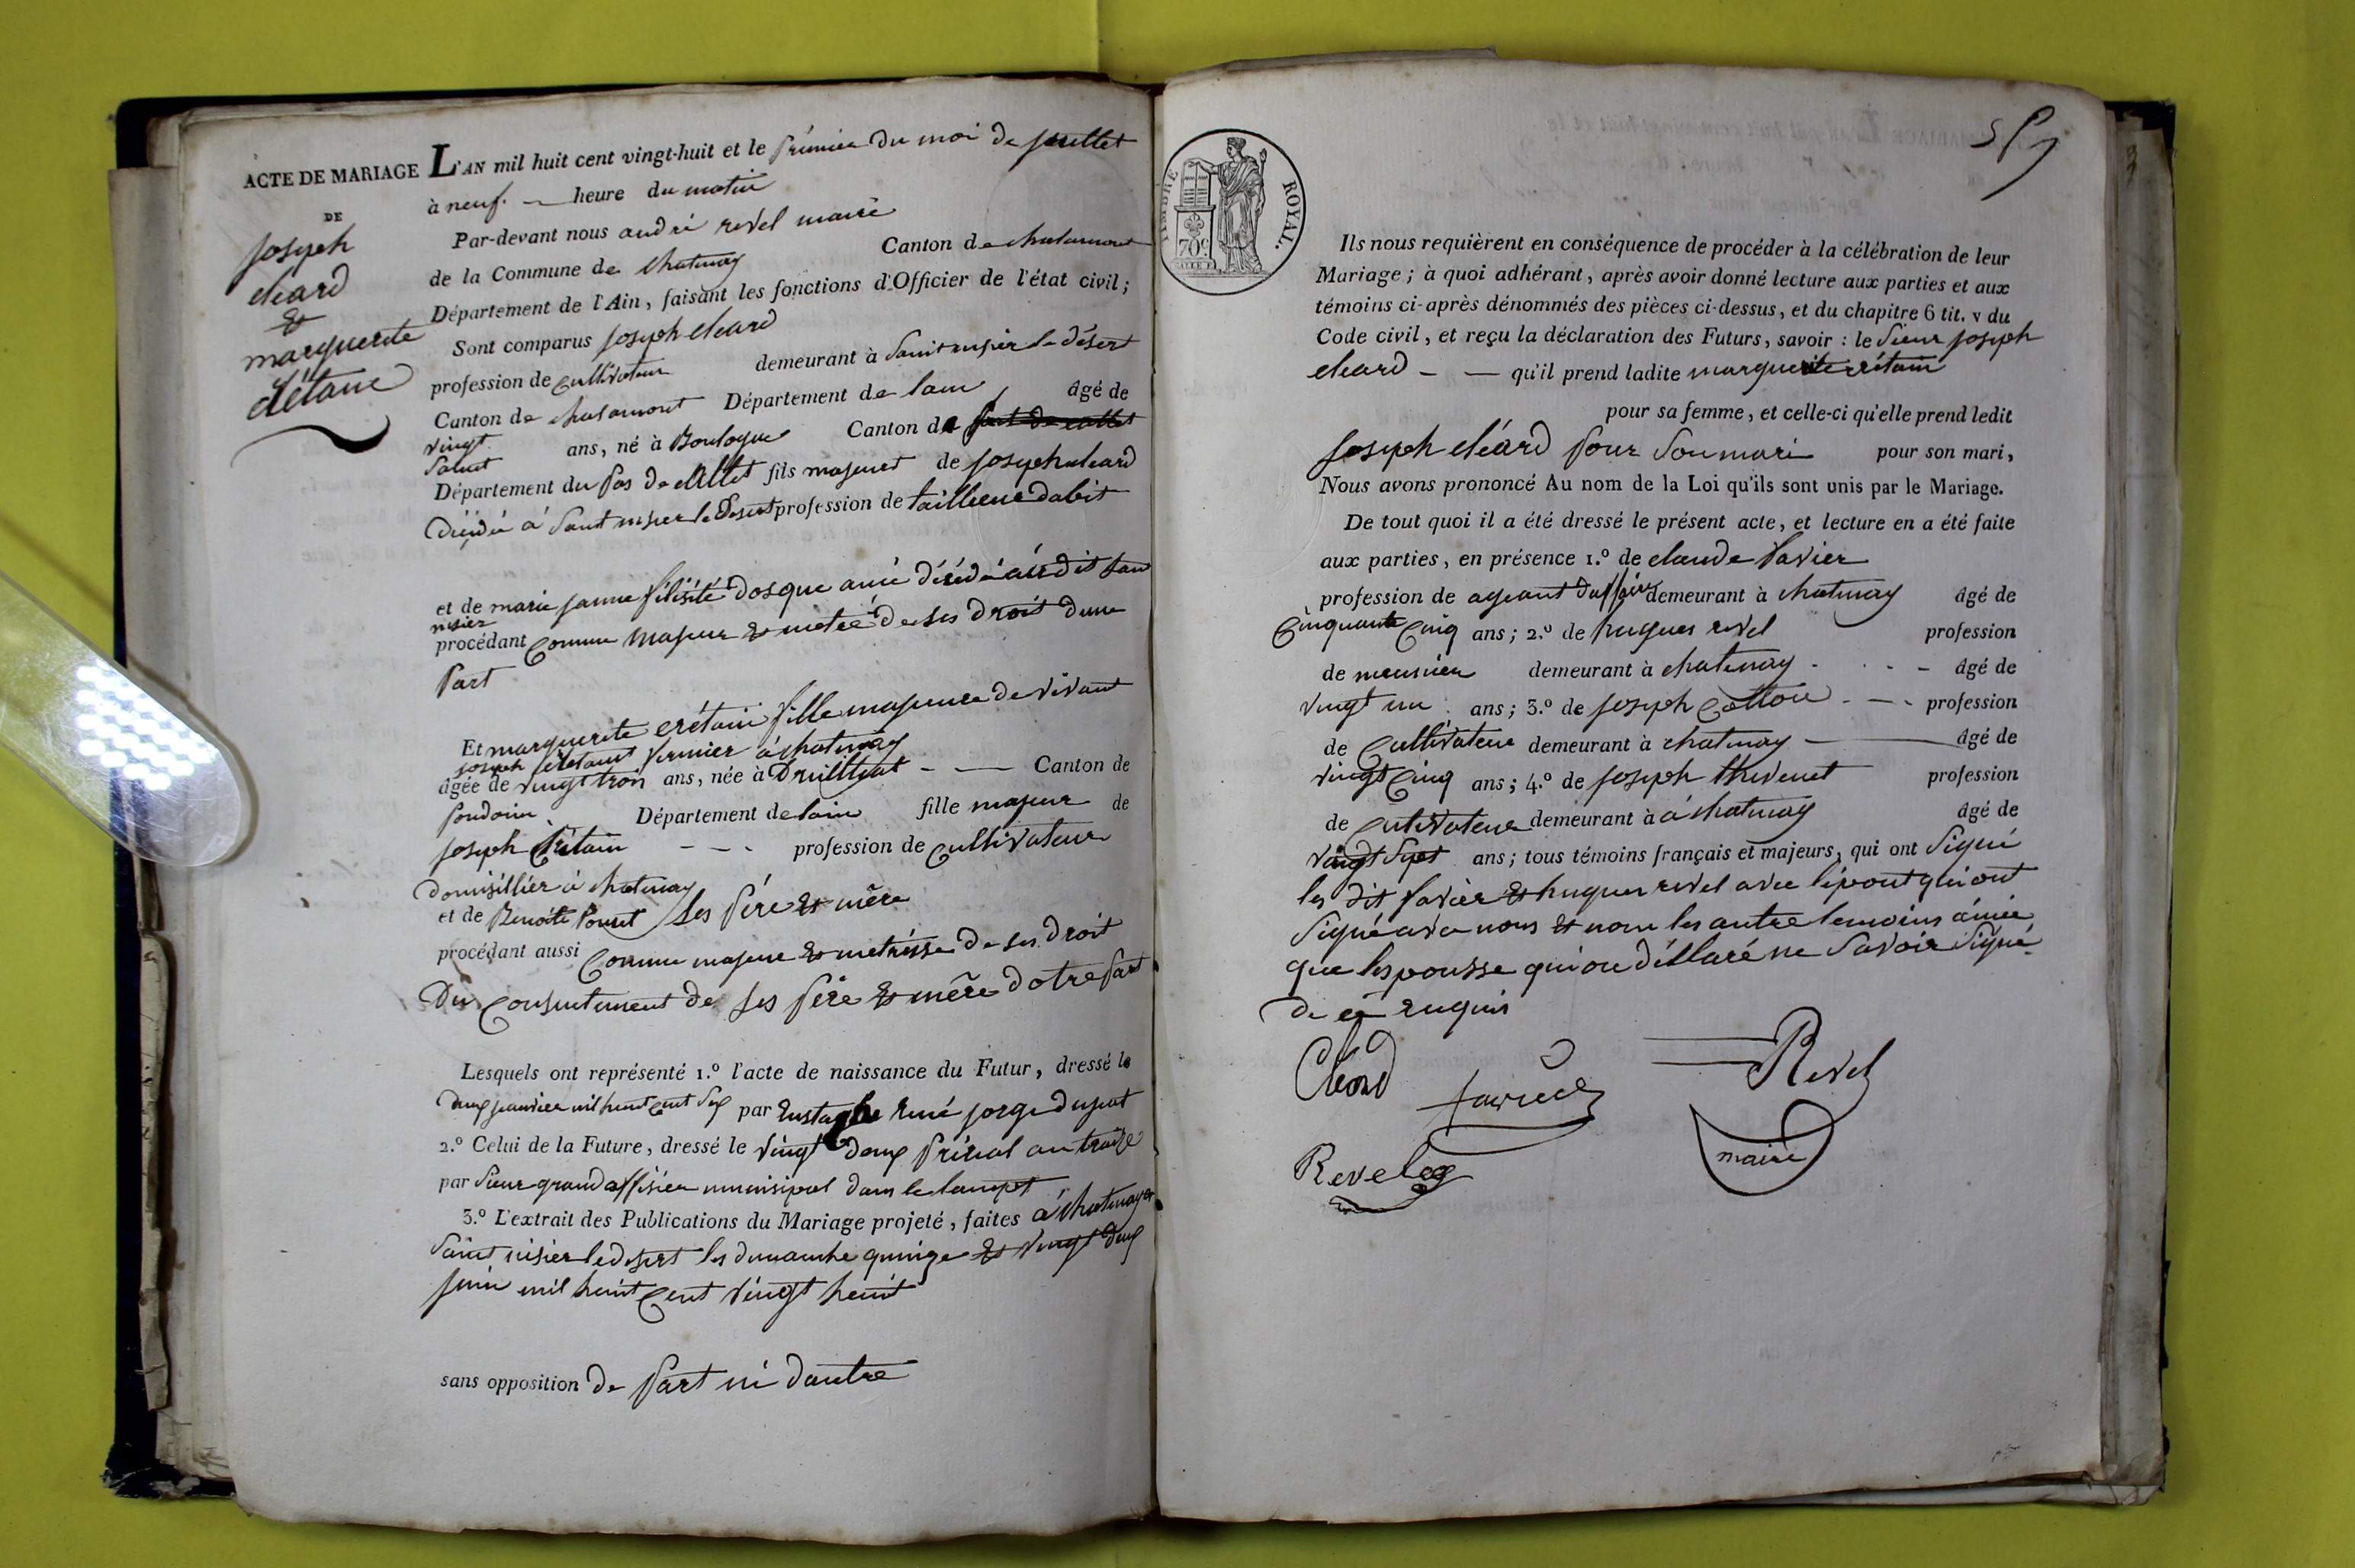 ACTE DE MARIAGE
DE
joseph
cléard
&
marguerite
crétain
L'AN mil huit cent vingt-huit et le prémier du moi de juillet
à neuf. — heure du matin
Par-devant nous andré revel maire
de la Commune de chatenay Canton de chalamont
Département de l'Ain, faisant les fonctions d'Officier de l'état civil;
Sont comparus joseph cléard
profession de cultivateur demeurant à Saint nisier le désert
Canton de chalamont Département de lain âgé de
vingt ans, né à Boulogne Canton de
Département du pas de callet fils majeur de joseph cléard
dééde à Saint nisier le Desert profession de tailleur dabit
et de marie janne félisité dosque aussi décédé audit San
nisier
procédant comme majeur & metre de ses droit dune
part
Et marguerite crétain fille majeure de vivant
joseph crétain fermier à chatenay
âgée de vingt trois ans, née à Druilliat - — Canton de
pondain Département de lain fille majeur de
joseph Crétain - - - profession de cultivateur
domisillier à chatenay
et de Benoite Ponset ses père & mère
procédant aussi comme majeure & metrésse de ses droit
Du consentement de ses père & mère dotre part
Lesquels ont représenté 1.º l'acte de naissance du Futur, dressé le
deux janvier mil huit cent sept par Eustache René jorge dupont
2.º Celui de la Future, dressé le vingt deux prérial an traize
par Sieur grand offisier munisipal dans le tempt
3.º L'extrait des Publications du Mariage projeté, faites à chatenay et
Saint nisier le desert les dimanche quinze & vingt deux
juin mil huit cent vingt huit
sans opposition de part ni dautre
TIMBRE ROYAL.
70 c
Ils nous requièrent en conséquence de procéder à la célébration de leur
Mariage; à quoi adhérant, après avoir donné lecture aux parties et aux
témoins ci-après dénommés des pièces ci-dessus, et du chapitre 6 tit. v du
Code civil, et reçu la déclaration des Futurs, savoir : le Sieur joseph
cléard - — qu'il prend ladite marguerite crétain
pour sa femme, et celle-ci qu'elle prend ledit
joseph cléard pour son mari pour son mari,
Nous avons prononcé Au nom de la Loi qu'ils sont unis par le Mariage.
De tout quoi il a été dressé le présent acte, et lecture en a été faite
aux parties, en présence 1.º de claude favier
profession de ageant daffaire demeurant à chatenay âgé de
Cinquante Cinq ans; 2.º de hugues revel profession
de meunier demeurant à chatenay - âgé de
vingt un ans; 3.º de joseph Cotton - — - profession
de Cultivateur demeurant à chatenay — âgé de
vingt Cinq ans; 4.º de joseph thevenet profession
de Cultivateur demeurant à à chatenay âgé de
vaingt Sept ans; tous témoins français et majeurs, qui ont Signé
les dit favier & hugues revel avec lépout qui ont
Signé avec nous & non les autre temoins ainsi
que lespousse qui on déllaré ne Savoir Signé
de ce requis
Cleard
favier
Revel
Revel
maire